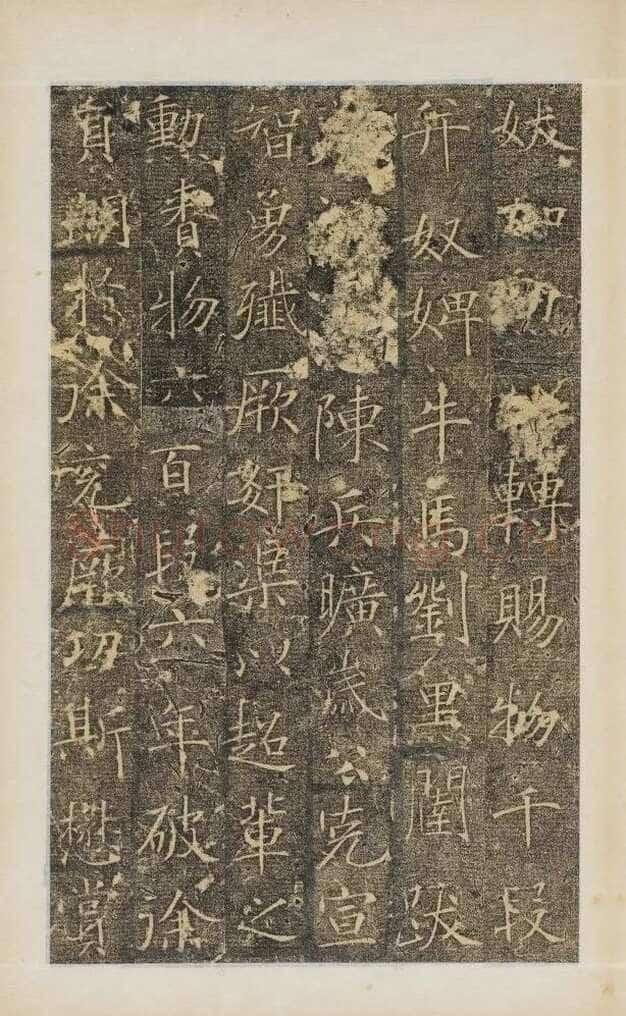 加轉賜物千段
并奴婢牛馬劉黑闥跋
陳兵曠歲公克宣
智勇殲厥姧渠以超輩之
勳賚物六百段六年破徐
員朗於徐兗厥功斯懋賞